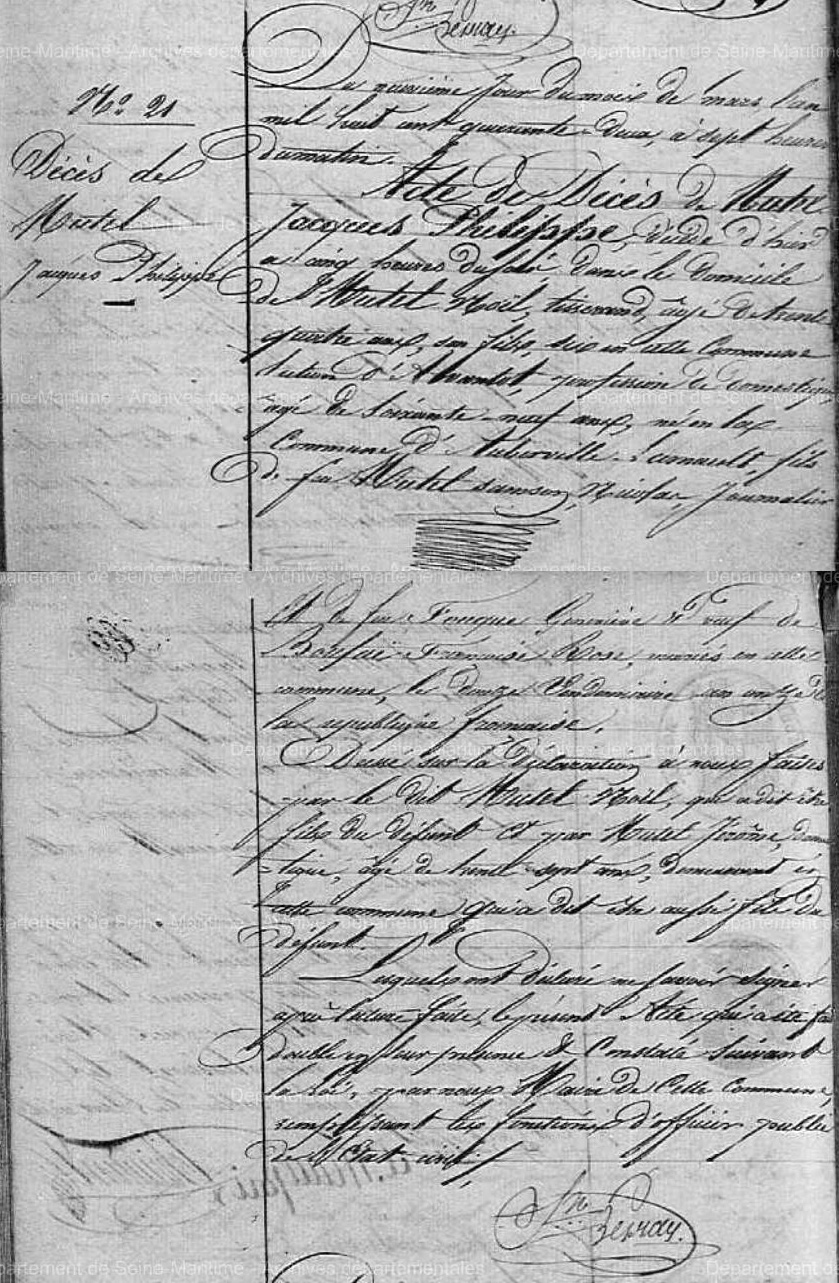 Jn Bernay.
Du neuvième jour du mois de mars l'an
mil huit cent quarante-deux, à sept heures
du matin.
N° 21
Décès de
Mutel
Jacques Philippe
Acte de Décès de Mutel
Jacques Philippe, décédé d'hier
à cinq heures du soir dans le domicile
de Mutel Noël, tisserand, âgé de trente
quatre ans, son fils, sis en cette Commune
section d', profession de domestique
âgé de soixante-neuf ans, né en la
Commune d'Auberville-Renault, fils
de feu Mutel Samson, Nicolas, Journalier
Et de feu Fouque Geneviève et veuf de
Françoise Rose, mariés en cette
commune, le douze Vendémiaire an onze de
la république française.
Dressé sur la Déclaration à nous faites
par le dit Mutel Noël, qui a dit être
fils du défunt Et par Mutel Jérôme, domes
-tique, âgé de trente-sept ans, demeurant en
cette commune qui a dit être aussi fils du
défunt.
Lesquels ont déclaré ne savoir signer
après lecture faite, le présent Acte qui a été fait
double en leur présence & Constaté suivant
la loi, par nous Maire de Cette Commune,
remplissant les fonctions d'officier public
de l'État civil.
Jn Bernay.